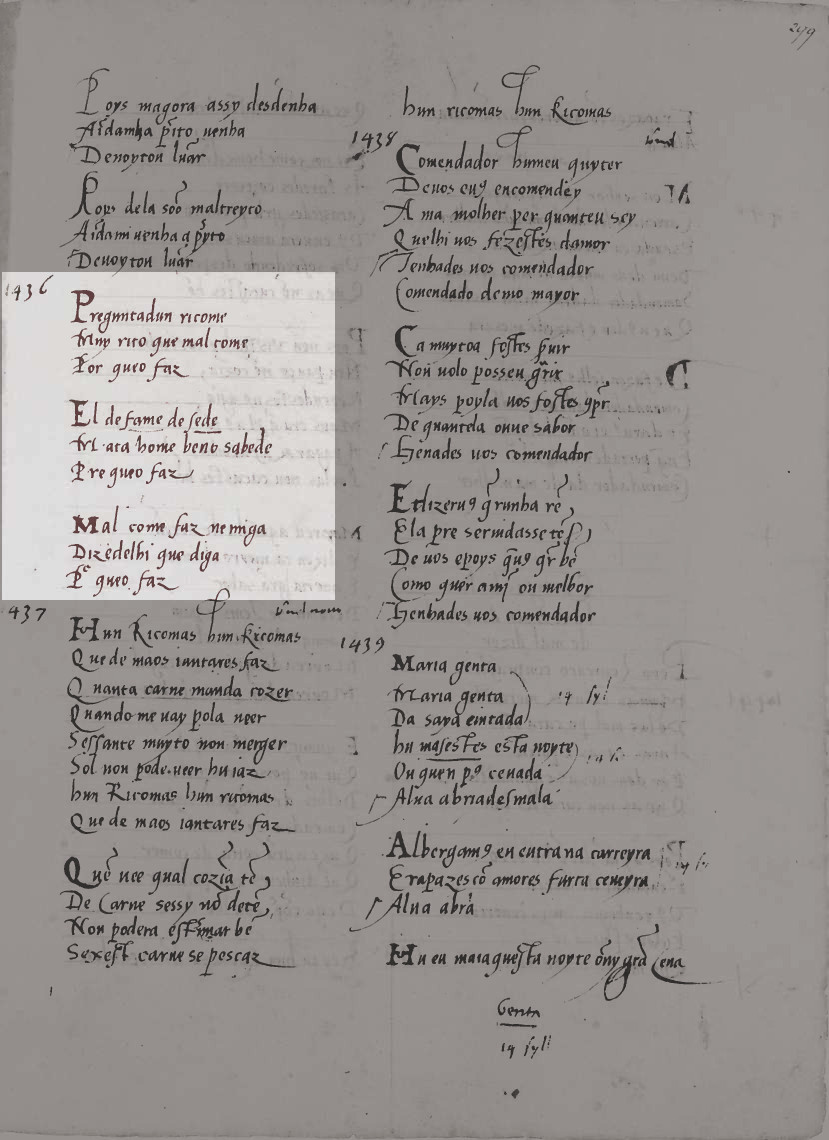 279
Poys magora assy desdenha
Aidamha p̃ito uenha
Denoyton luar
Poys dela soo maltreyto
Aidami uenha a p̃yto
Denoyton luar
1436
Preguntadun ricome
Muy rico que mal come
Por queo faz
El de fame de sede
Mata home beno sabede
Pre queo faz
Mal come faz nemiga
Dizedelhi que diga
P̃ queo faz
1437
Hun Ricomas hun Ricomas
Que de maos iantares faz
Quanta carne manda cozer
Quando me uay pola ueer
Sessante muyto non merger
Sol non pode ueer hu iaz
hun Ricomas hun ricomas
Que de maos iantares faz
Quẽ uee qual cozĩa tẽ
De Carne sessy nõ detẽ
Non podera estĩmar bẽ
Sexest carne se pescaz
hun ricomas hun Ricomas
1438
Comendador humeu quyter
De uos eu9 encomendey
A ma molher per quanteu sey
Quelhi uos fezestes damor
Tenhades uos comendador
Comendado demo mayor
Ca muytoa fostes p̃uir
Non uolo posseu g̃rir
Mays poyla uos fostes
De quantela ouue sabor
Henades uos comendador
Edizeru9 g̃runha rẽ
Ela pre seruidassetẽ
De uos epoys q̃u9 q̃r bẽ
Como quer amĩ ou melhor
Henhades uos comendador
1439
Maria genta
Maria genta
Da saya cintada
14 syl
hu masestes esta noyte
Ou quen p9 ceuada
Alua abriadesmala
Albergam9 eu en carreyra
Erapazes cõ amores furta ceueyra
Alua abra
Hu eu maiaquesta noyte ouuy grã cena
Genta
14 syll